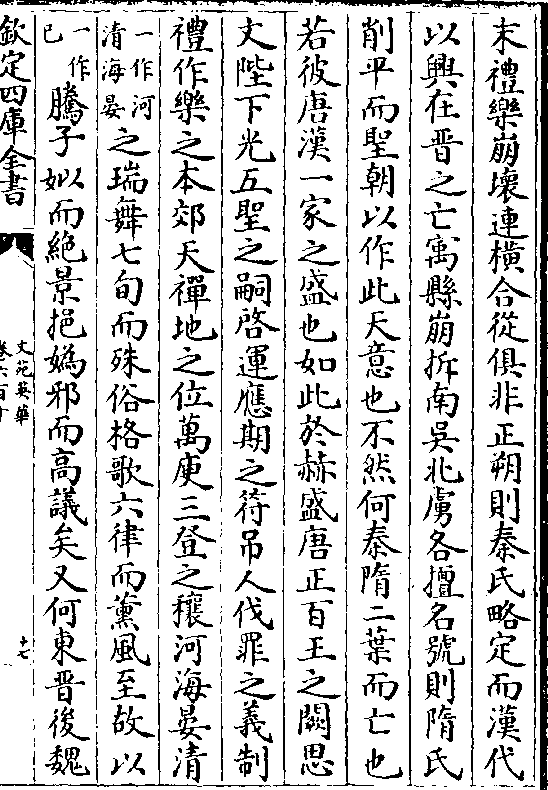 末禮樂崩壞連横合從俱非正朔則秦氏略定而漢代
以興在晋之亡寓縣崩拆南吳北虜各擅名號則隋氏
削平而聖朝以作此天意也不然何秦隋二葉而亡也
若彼唐漢一家之盛也如此於赫盛唐正百王之闕思
文陛下光五聖之嗣啓運應期之符吊人伐罪之義制
禮作樂之本郊天禪地之位萬庾三登之穰河海晏清
一作河清海晏之瑞舞七旬而殊俗格歌六律而薰風至故以
一作已騰子姒而絶景挹媯邪而高議矣又何東晋後魏
欽定四庫全書
文苑英華
卷六百十
十七